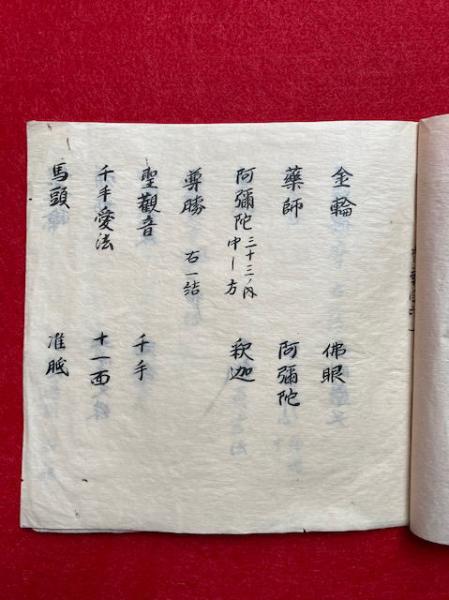 金輪 佛眼
藥師 阿彌陀
阿彌陀 三十三ノ内 中一方 釈迦
尊勝 右一結
聖觀音 千手
千手愛法 十一面
馬頭 准胝